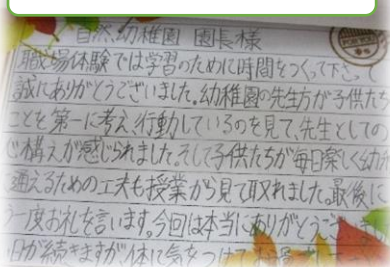 自然幼稚園 園長様
職場体験では学習のために時間をつくって下さって
誠にありがとうございました。幼稚園の先生方が子供たち
ことを第一に考え、行動しているのを見て、先生としての
構えが感じられました。そして子供たちが毎日楽しく幼
通えるための工夫も授業から見て取れました。最後に
う一度お礼を言います。今回は本当にありがとうござ
日が続きますが、体に気をつけて